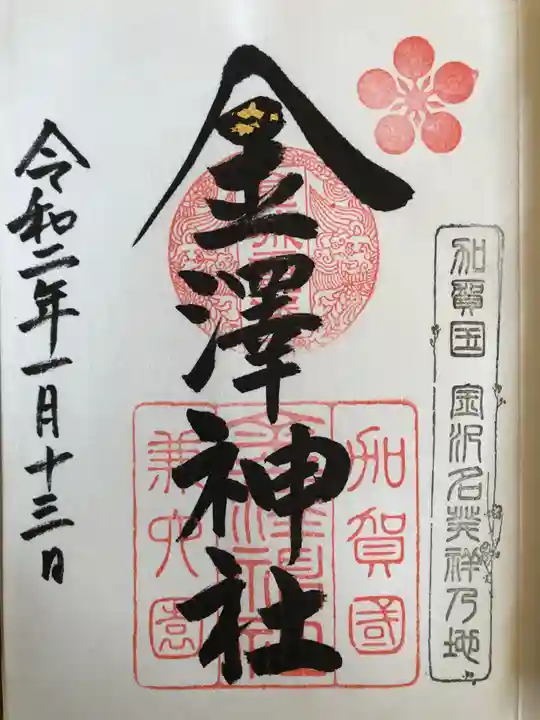 加賀国 金沢名発祥乃地
金澤神社
加賀國
金澤神社
兼六園
令和二年一月十三日